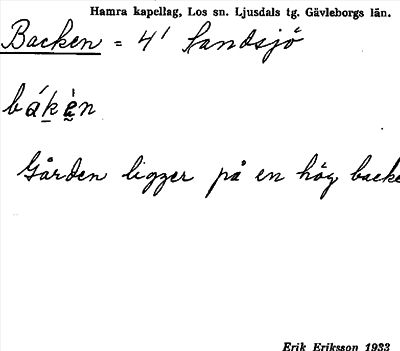 Hamra kapellag, Los sn. Ljusdals tg. Gävleborgs län.
Backen = 4' Sandsjö
bákèn
Gården ligger på en hög backe
Erik Eriksson 1933